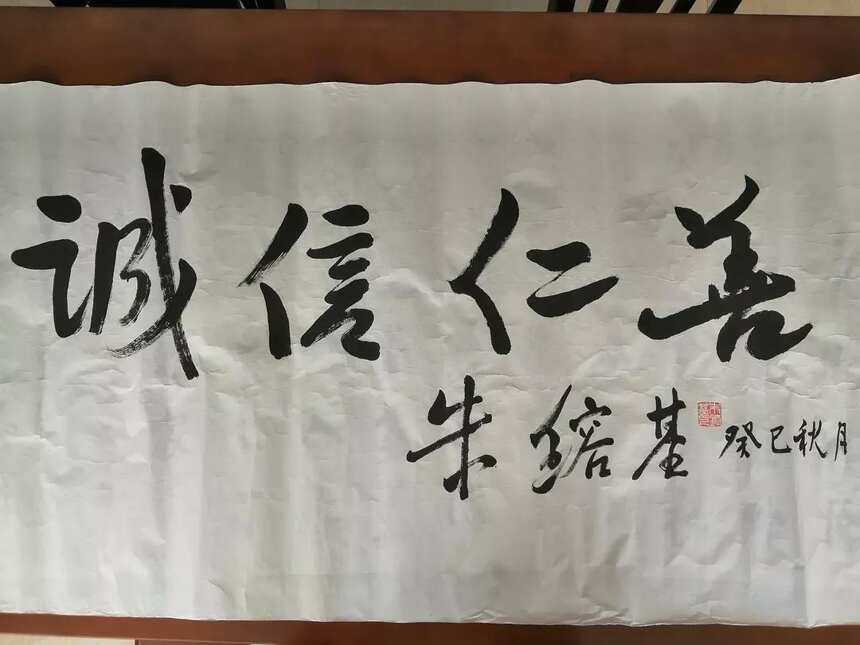 誠信仁善
朱鎔基 癸巳秋月